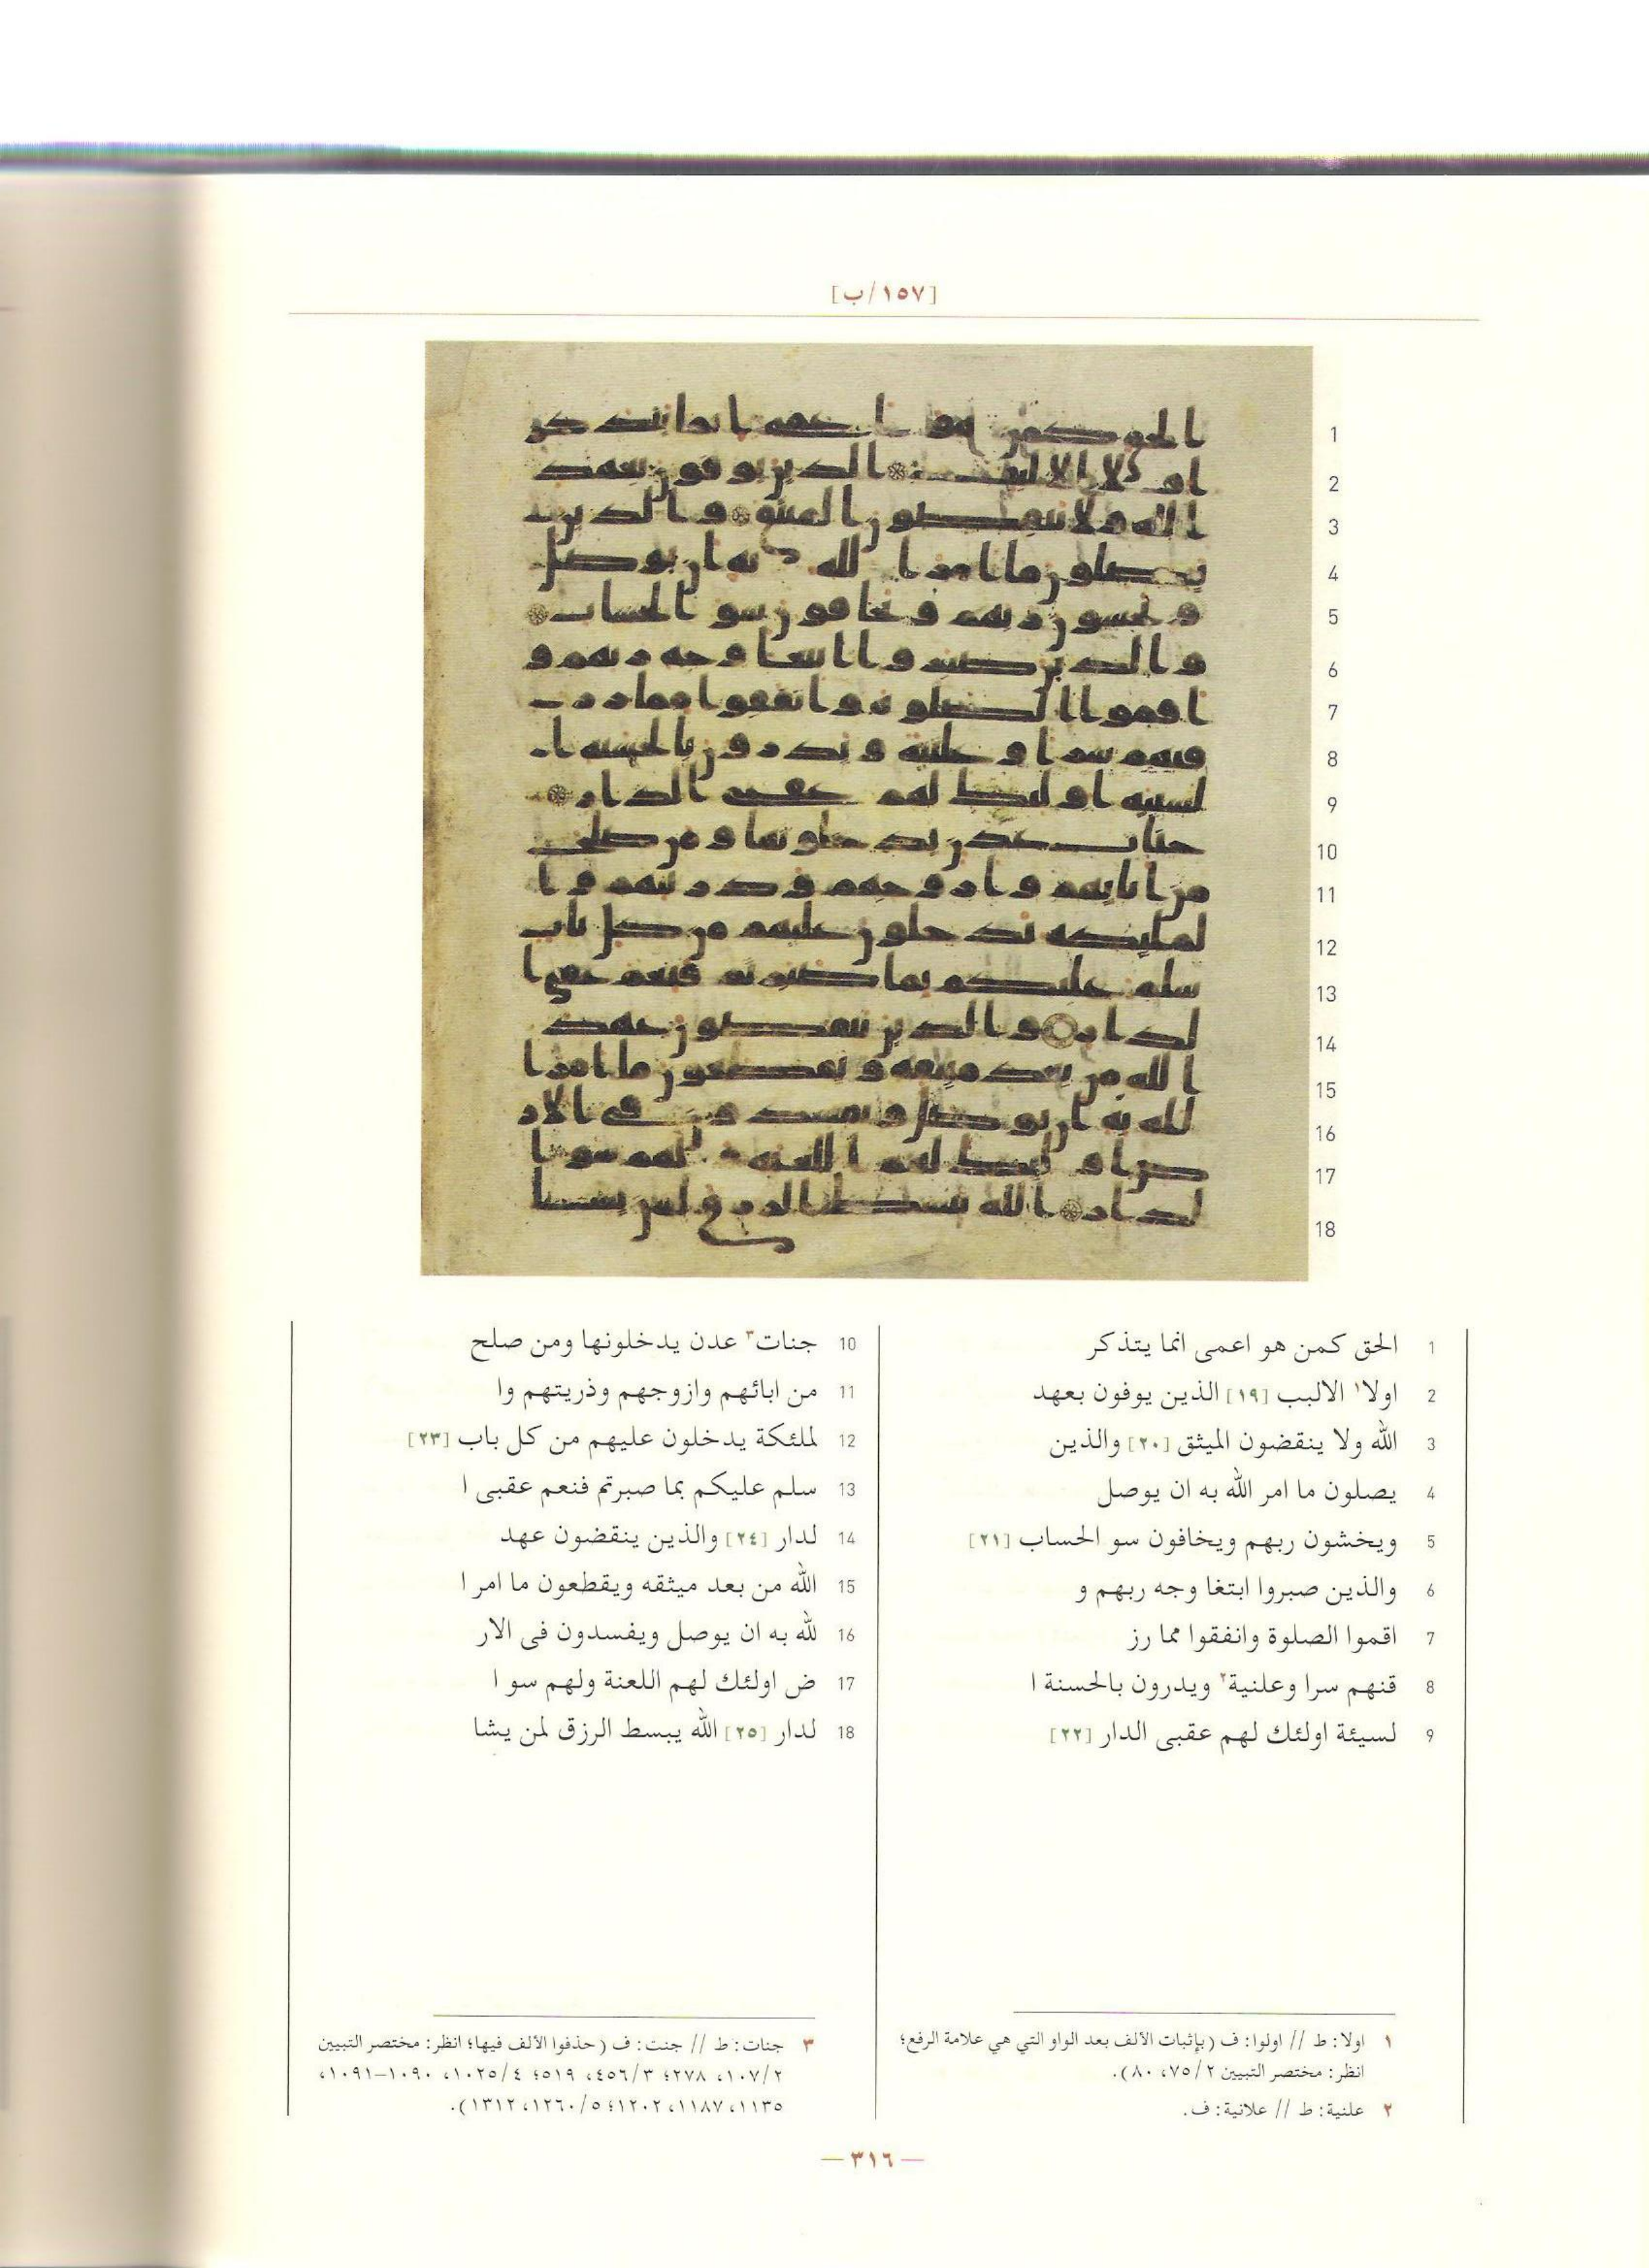 [١٥٧/ب]
1 الحق كمن هو اعمى انما يتذكر
2 اولا١ الالبب [١٩] الذين يوفون بعهد
3 الله ولا ينقضون الميثق [٢٠] والذين
4 يصلون ما امر الله به ان يوصل
5 ويخشون ربهم ويخافون سو الحساب [٢١]
6 والذين صبروا ابتغا وجه ربهم و
7 اقموا الصلوة وانفقوا مما رز
8 قنهم سرا وعلنية٢ ويدرون بالحسنة ا
9 لسيئة اولئك لهم عقبى الدار [٢٢]
10 جنات٣ عدن يدخلونها ومن صلح
11 من ابائهم وازوجهم وذريتهم وا
12 لملئكة يدخلون عليهم من كل باب [٢٣]
13 سلم عليكم بما صبرتم فنعم عقبى ا
14 لدار [٢٤] والذين ينقضون عهد
15 الله من بعد ميثقه ويقطعون ما امر ا
16 لله به ان يوصل ويفسدون فى الار
17 ض اولئك لهم اللعنة ولهم سو ا
18 لدار [٢٥] الله يبسط الرزق لمن يشا
١ اولا: ط // اولوا: ف (بإثبات الألف بعد الواو التي هي علامة الرفع؛
انظر: مختصر التبيين ٧٥/٢، ٨٠).
٢ علنية: ط // علانية: ف.
٣ جنات: ط // جنت: ف (حذفوا الألف فيها؛ انظر: مختصر التبيين
١٠٧/٢، ٢٧٨؛ ٤٥٦/٣، ٥١٩؛ ١٠٢٥/٤، ١٠٩٠-١٠٩١،
١١٣٥، ١١٨٧، ١٢٠٢؛ ١٢٦٠/٥، ١٣١٢).
— ٣١٦ —